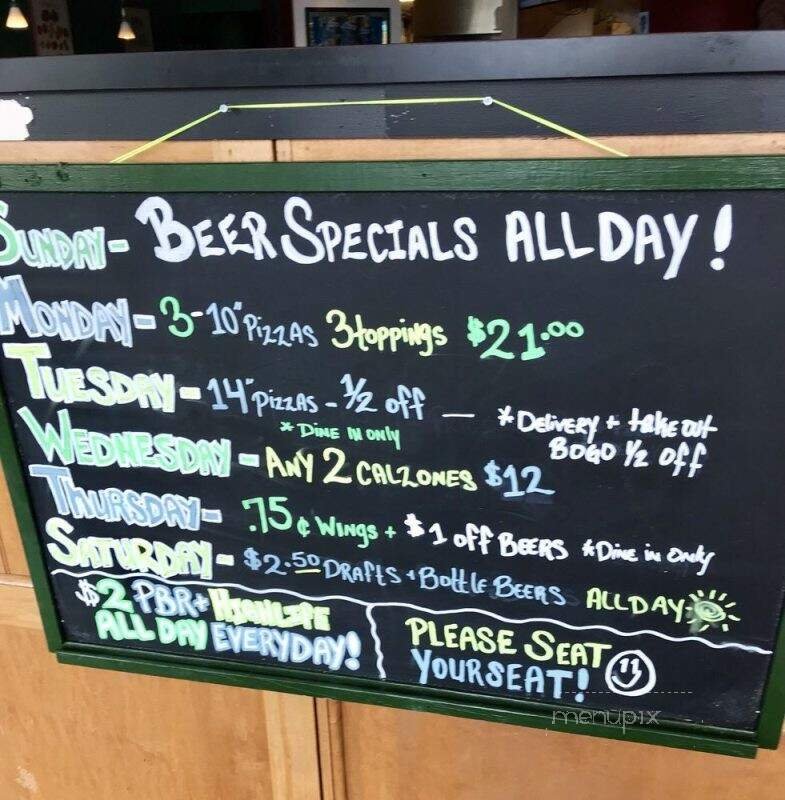 SUNDAY - BEER SPECIALS ALL DAY!
MONDAY - 3-10" PIZZAS 3 toppings $21.00
TUESDAY - 14" PIZZAS - 1/2 off — * DELIVERY + take out
* DINE IN ONLY BOGO 1/2 off
WEDNESDAY - ANY 2 CALZONES $12
THURSDAY - .75¢ WINGS + $1 off BEERS * DINE in ONLY
SATURDAY - $2.50 DRAFTS + Bottle BEERS ALL DAY
$2 PBR + HIGHLIFE
ALL DAY EVERYDAY!
PLEASE SEAT
YOURSEAT!
menupix